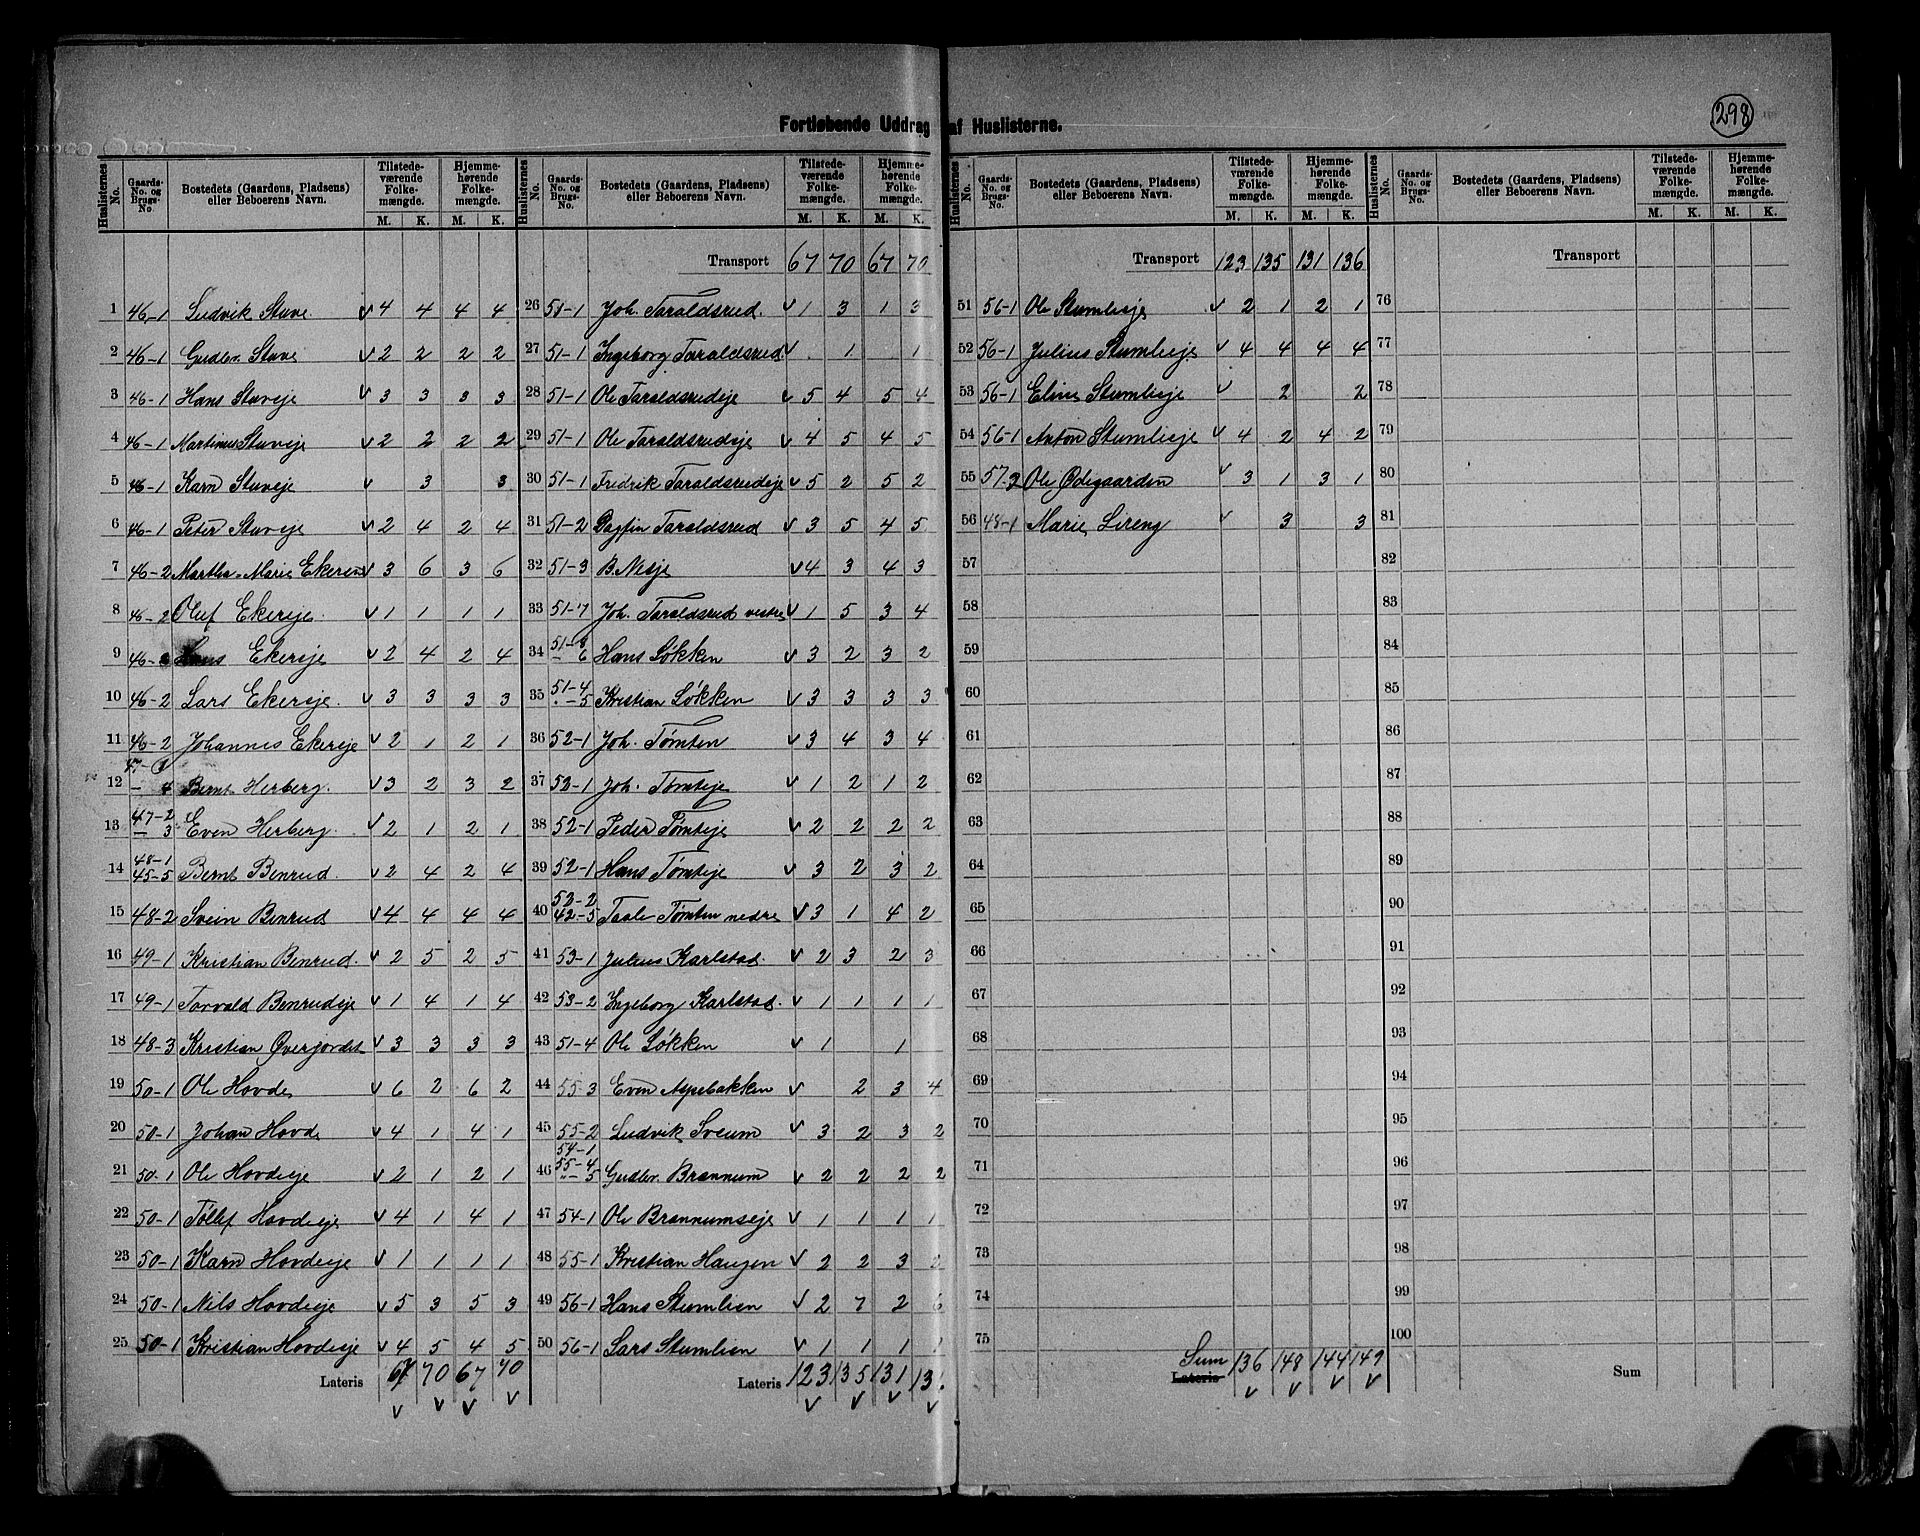 298
Fortløbende Uddrag af Huslisterne.
Huslisternes No. Gaards-No. og Brugs-No. Bostedets (Gaardens, Pladsens) eller Beboerens Navn. Tilstedeværende Folkemængde. M. K. Hjemmehørende Folkemængde. M. K.
1 46-1 Ludvik Stuve v 4 4 4 4
2 46-1 Gudbr. Stuve v 2 2 2 2
3 46-1 Hans Stuveje v 3 3 3 3
4 46-1 Martinus Stuveje v 2 2 2 2
5 46-1 Karn Stuveje v 3 3
6 46-1 Peter Stuveje v 2 4 2 4
7 46-2 Martha-Marie Ekeren v 3 6 3 6
8 46-2 Oluf Ekereje v 1 1 1 1
9 46- Hans Ekereje v 2 4 2 4
10 46-2 Lars Ekereje v 3 3 3 3
11 46-2 Johannes Ekereje v 2 1 2 1
12 47-1 – 4 Bernt Herberg v 3 2 3 2
13 47-2 – 3 Even Herberg v 2 1 2 1
14 48-1 45-5 Bernt Benrud v 2 4 2 4
15 48-2 Svein Benrud v 4 4 4 4
16 49-1 Kristian Benrud v 2 5 2 5
17 49-1 Torvald Benrudeje v 1 4 1 4
18 48-3 Kristian Øverjordet v 3 3 3 3
19 50-1 Ole Hovde v 6 2 6 2
20 50-1 Johan Hovde v 4 1 4 1
21 50-1 Ole Hovdeeje v 2 1 2 1
22 50-1 Tollef Hovdeeje v 4 1 4 1
23 50-1 Karn Hovdeeje v 1 1 1 1
24 50-1 Nils Hovdeeje v 5 3 5 3
25 50-1 Kristian Hovdeeje v 4 5 4 5
Lateris 67 70 67 70
v v v v
Transport 67 70 67 70
26 51-1 Joh. Taraldsrud v 1 3 1 3
27 51-1 Ingeborg Taraldsrud v 1 1
28 51-1 Ole Taraldsrudeje v 5 4 5 4
29 51-1 Ole Taraldsrudeje v 4 5 4 5
30 51-1 Fredrik Taraldsrudeje v 5 2 5 2
31 51-2 Dagfin Taraldsrud v 3 5 4 5
32 51-3 B. Nesje v 4 3 4 3
33 51-7 Joh. Taraldsrud vestre v 1 5 3 4
34 51-8 – 6 Hans Løkken v 3 2 3 2
35 51-4 – 5 Kristian Løkken v 3 3 3 3
36 52-1 Joh. Tømten v 3 4 3 4
37 52-1 Joh. Tømteje v 1 2 1 2
38 52-1 Peder Tømteje v 2 2 2 2
39 52-1 Hans Tømteje v 3 2 3 2
40 52-2 42-5 Taale Tømten nedre v 3 1 4 2
41 53-1 Julius Karlstad v 2 3 2 3
42 53-2 Ingeborg Karlstad v 1 1 1 1
43 51-4 Ole Løkken v 1 1
44 55-3 Even Aspebakken v 2 3 4
45 55-2 Ludvik Sveum v 3 2 3 2
46 54-1 55-4 – 5 Gudbr. Brænnum v 2 2 2 2
47 54-1 Ole Brænnumseje v 1 1 1 1
48 55-1 Kristian Haugen v 2 2 3 2
49 56-1 Hans Stumlien v 2 7 2 6
50 56-1 Lars Stumlien v 1 1 1 1
Lateris 123 135 131 13
v v v v
Transport 123 135 131 136
51 56-1 Ole Stumlieje v 2 1 2 1
52 56-1 Julius Stumlieje v 4 4 4 4
53 56-1 Eline Stumlieje v 2 2
54 56-1 Anton Stumlieje v 4 2 4 2
55 57-2 Ole Ødegaarden v 3 1 3 1
56 48-1 Marie Lireng v 3 3
57
58
59
60
61
62
63
64
65
66
67
68
69
70
71
72
73
74
75
Sum Lateris 136 148 144 149
v v v v
Transport
76
77
78
79
80
81
82
83
84
85
86
87
88
89
90
91
92
93
94
95
96
97
98
99
100
Sum